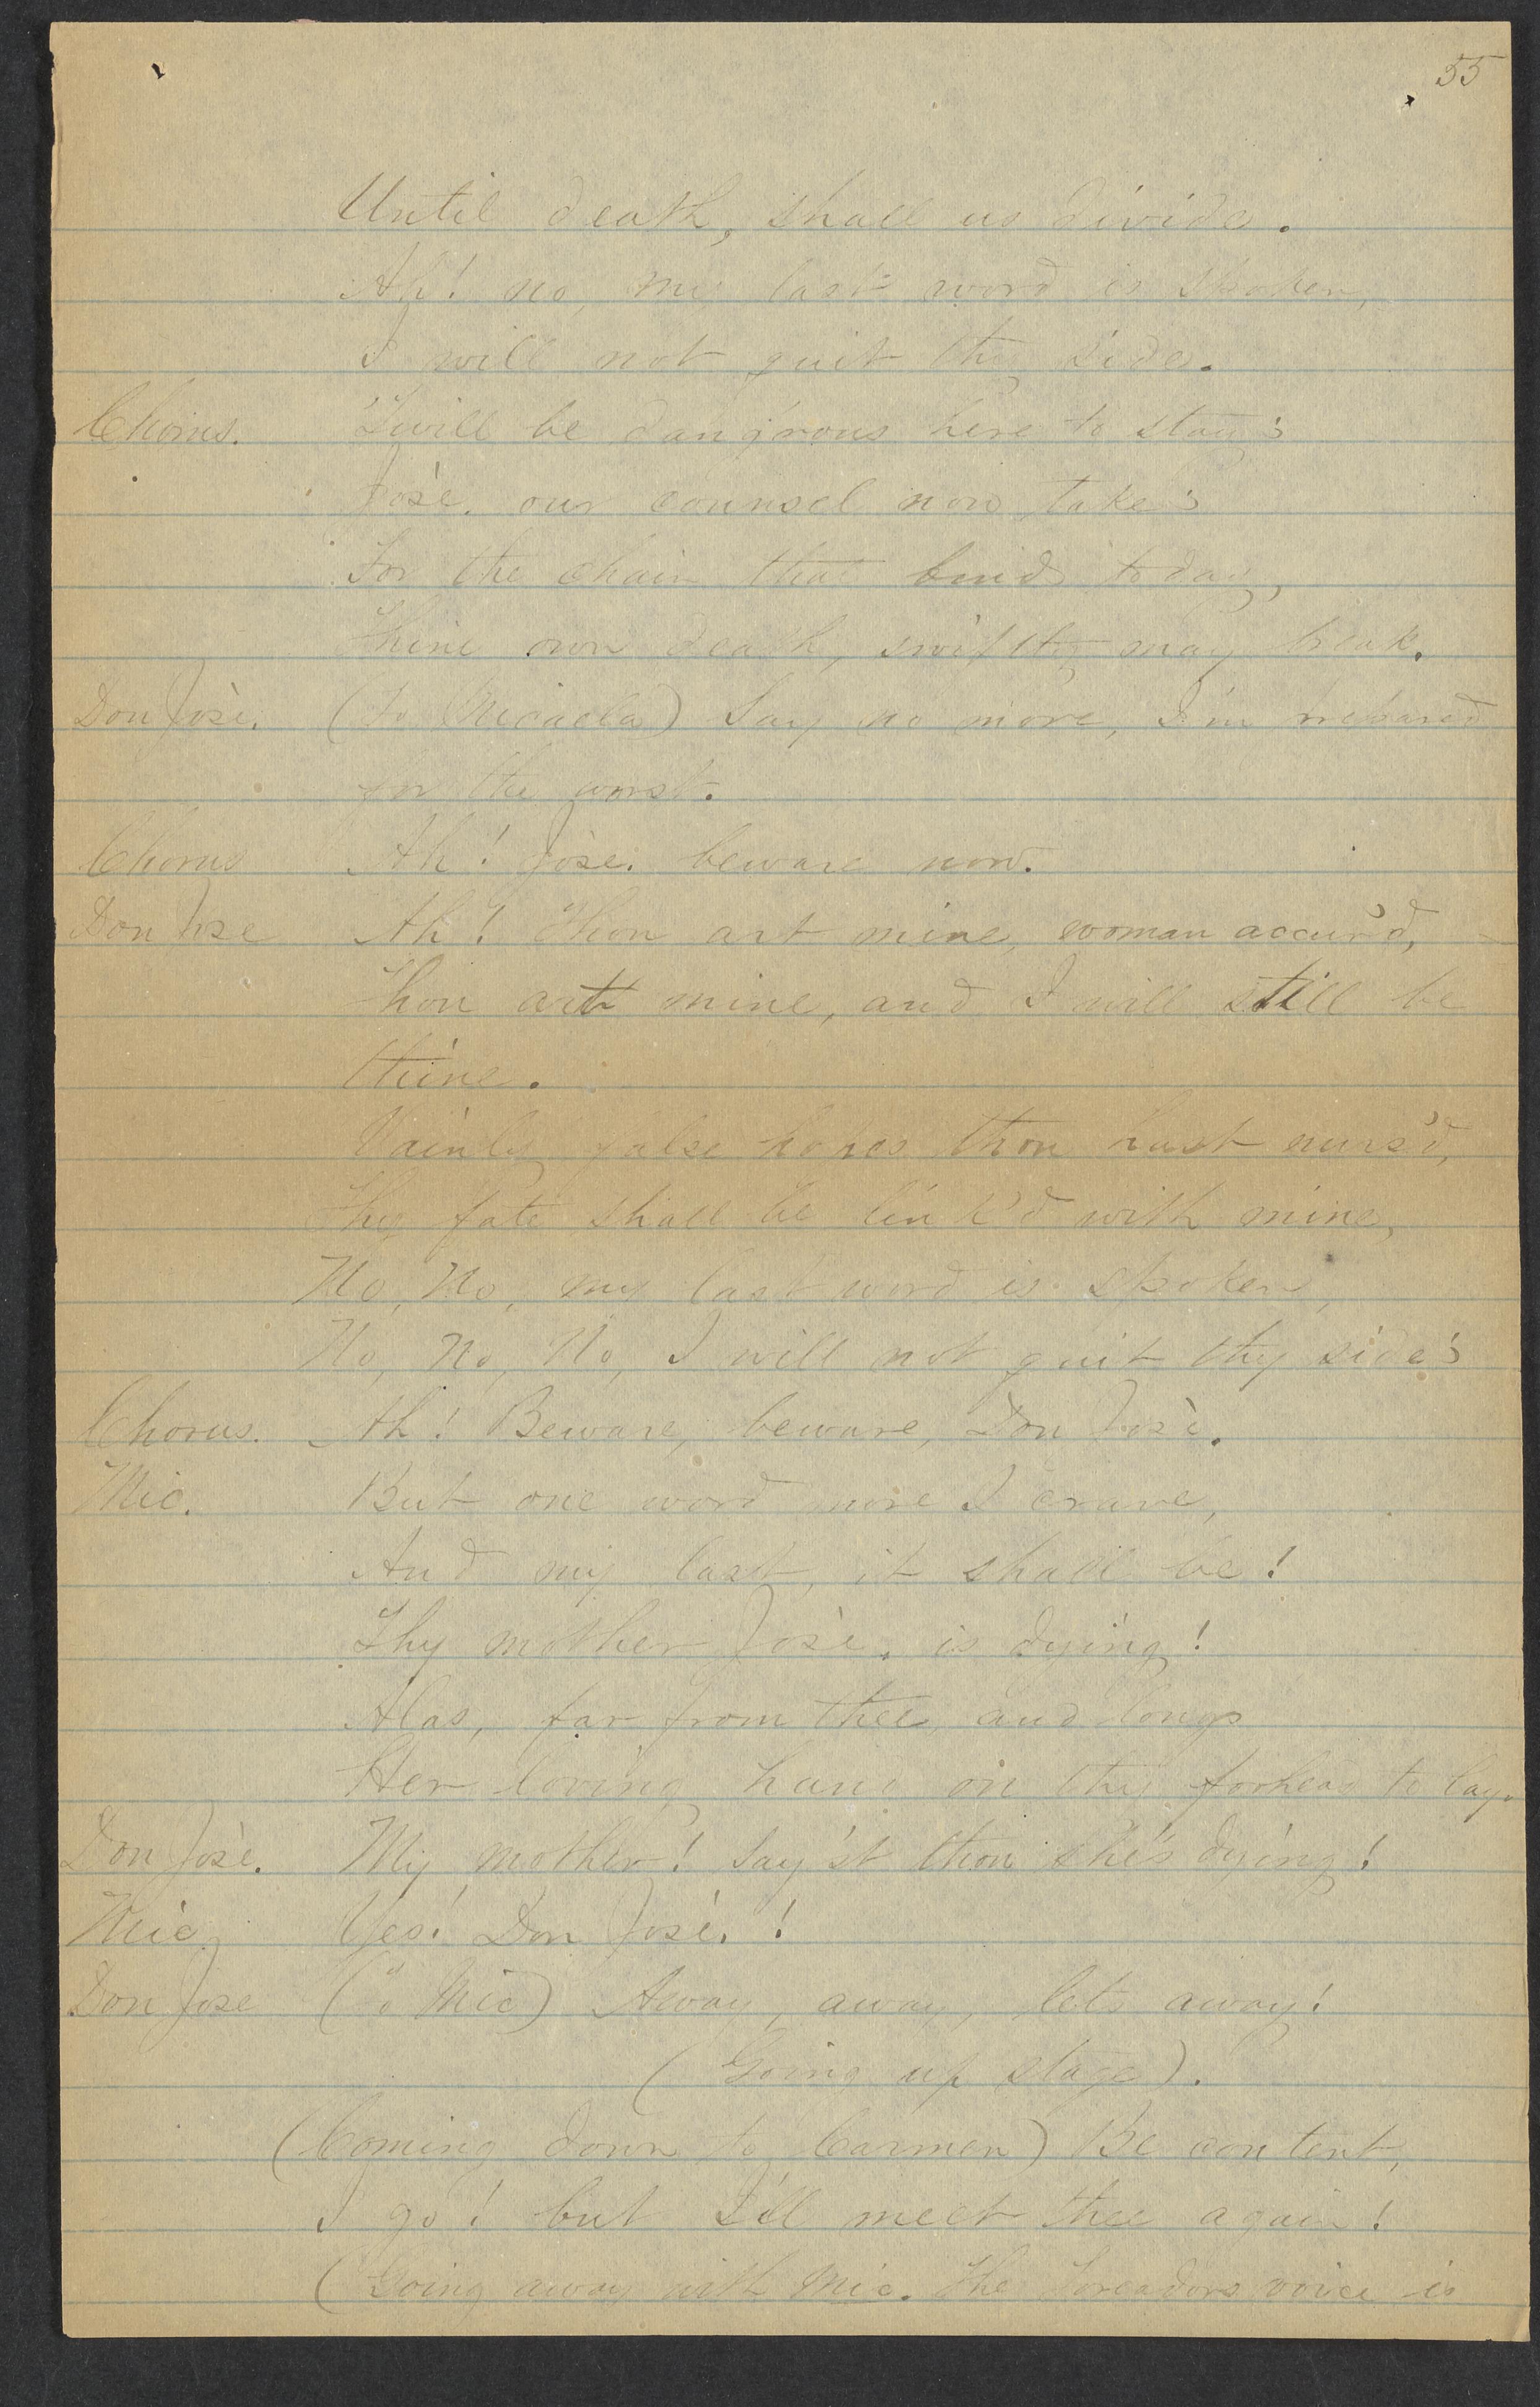 55
Until death, shall us divide.
Ah! no, my last word is spoken,
I will not quit thy side.
Chorus. 'Twill be dang'rous here to stay;
José, our counsel now take;
For the chain that binds today,
Thine own death, swiftly may break.
Don José. (To Micaela) Say no more, I'm prepared
for the worst.
Chorus Ah! José. beware now.
Don Jose Ah! Thou art mine, woman accurs'd,
Thou art mine, and I will still be
thine.
Vainly false hopes thou hast nurs'd,
Thy fate shall be link'd with mine,
No, No, my last word is spoken,
No, No, No, I will not quit thy side;
Chorus. Ah! Beware, beware, Don José.
Mic. But one word more I crave,
And my last, it shall be!
Thy mother José, is dying!
Alas, far from thee, and longs
Her loving hand on thy forhead to lay.
Don José. My mother! Say'st thou she's dying!
Mic. Yes! Don José. !
Don Jose (To Mic) Away, away, let's away!
(Going up stage).
(Coming down to Carmen) Be content,
I go! but I'll meet thee again!
(Going away with Mic. The Toreadors voice is